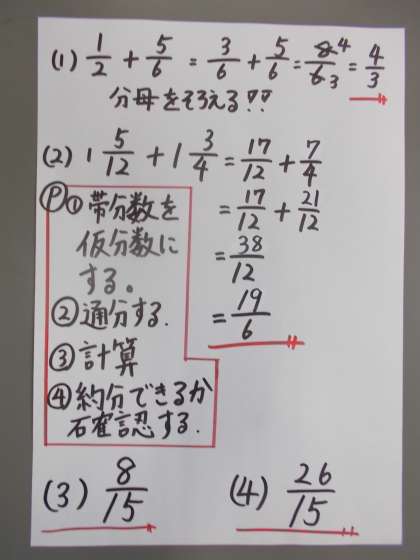 (1) 1/2 + 5/6 = 3/6 + 5/6 = 8/6 4/3 = 4/3
分母をそろえる!!
(2) 1 5/12 + 1 3/4 = 17/12 + 7/4
= 17/12 + 21/12
= 38/12
= 19/6
Ⓟ①帯分数を
仮分数に
する。
②通分する.
③計算
④約分できるか
確認する.
(3) 8/15
(4) 26/15